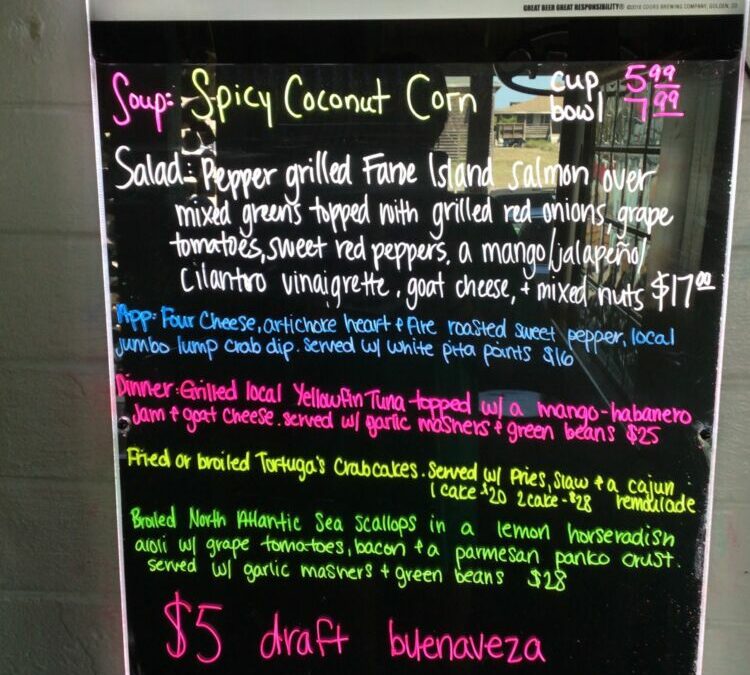 GREAT BEER GREAT RESPONSIBILITY® ©2016 COORS BREWING COMPANY, GOLDEN, CO
Soup: Spicy Coconut Corn cup 5.99
bowl 7.99
Salad: Pepper grilled Faroe Island salmon over
mixed greens topped with grilled red onions, grape
tomatoes, sweet red peppers, a mango/jalapeño/
cilantro vinaigrette, goat cheese, + mixed nuts $17.00
App: Four Cheese, artichoke heart + fire roasted sweet pepper, local
jumbo lump crab dip. served w/ white pita points $16
Dinner: Grilled local Yellowfin Tuna topped w/ a mango-habanero
jam + goat cheese. served w/ garlic mashers + green beans $25
Fried or broiled Tortuga's Crabcakes. Served w/ fries, slaw + a cajun
1 cake $20 2 cake - $28 remoulade
Broiled North Atlantic Sea scallops in a lemon horseradish
aioli w/ grape tomatoes, bacon + a parmesan panko crust.
served w/ garlic mashers + green beans $28
$5 draft buenaveza